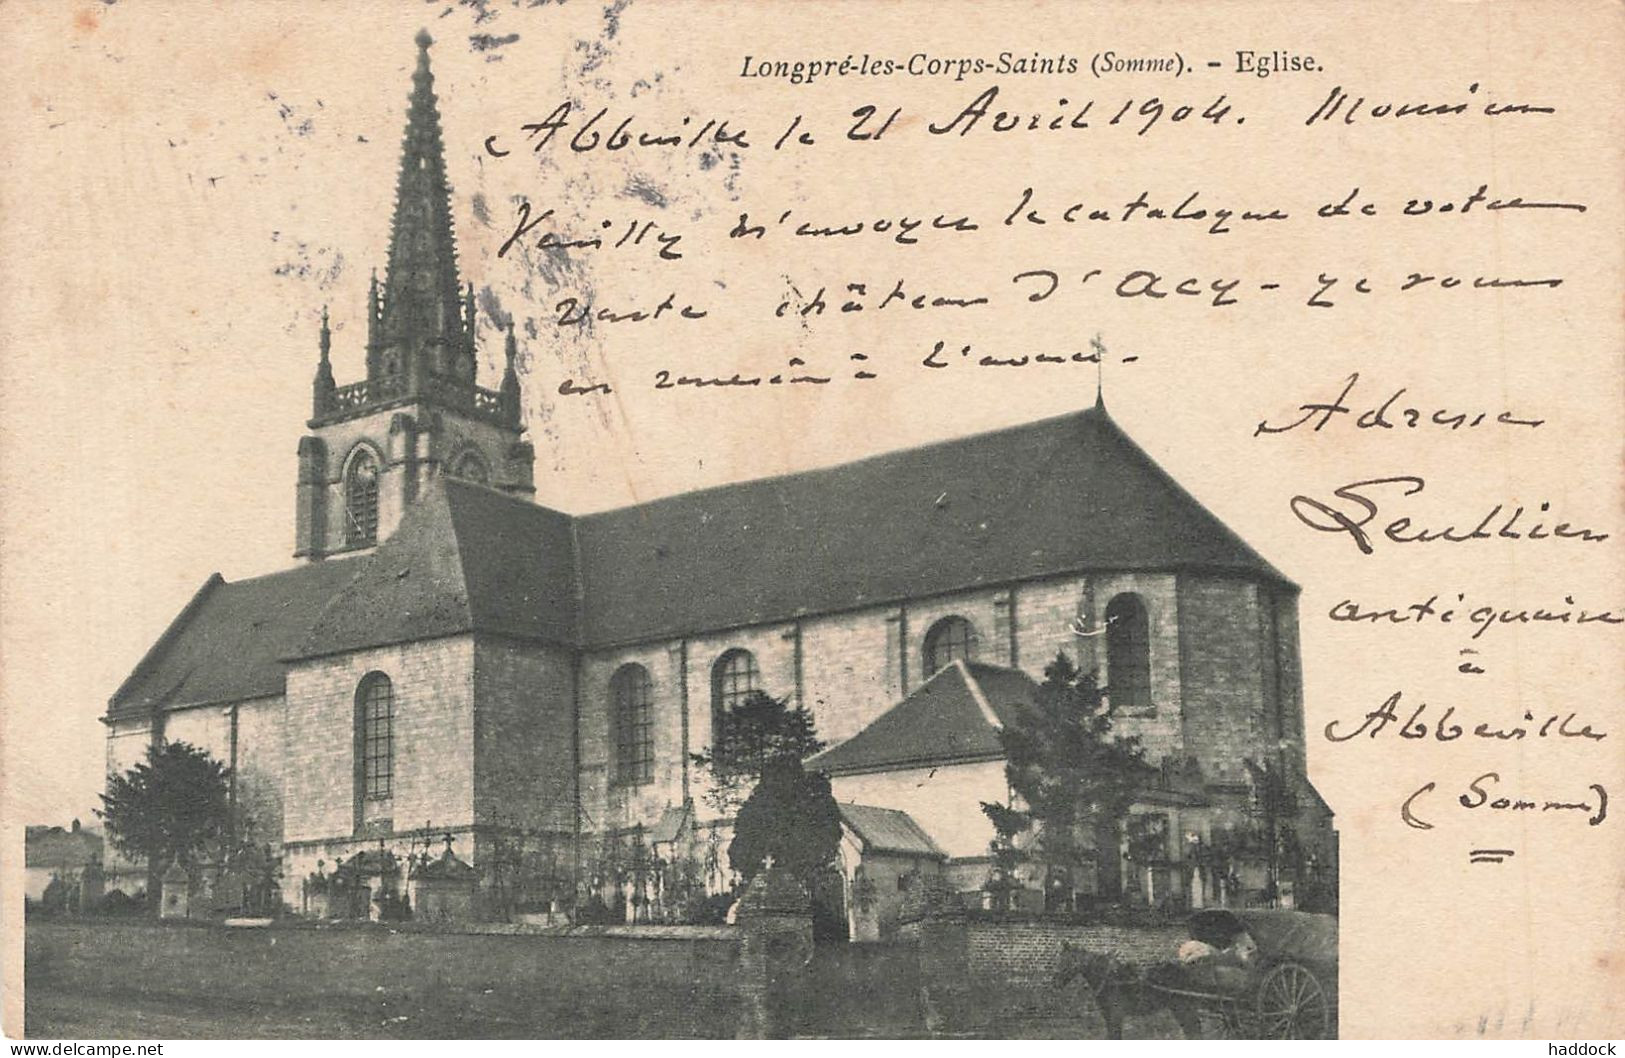 Longpré-les-Corps-Saints (Somme). - Eglise.
Abbeville le 21 Avril 1904. Monsieur
Veuillez m'envoyer le catalogue de votre
vente château d'Acy - je vous
en remercie à l'avance -
Adresse
Leullier
antiquaire
à
Abbeville
(Somme)
delcampe.net
haddock